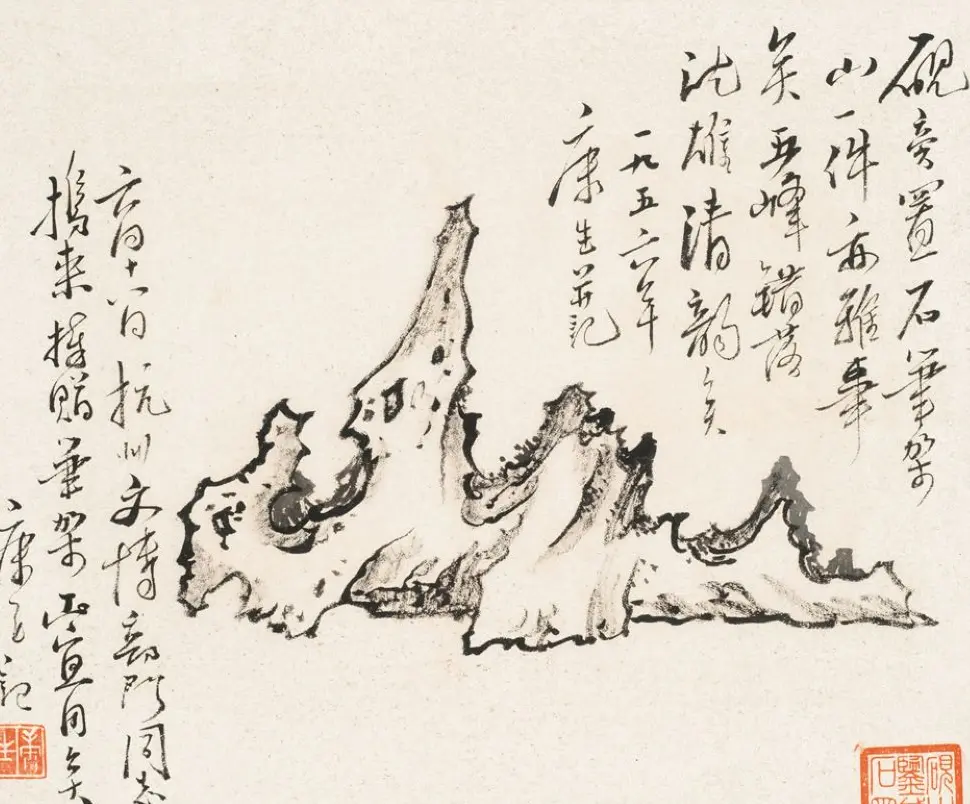 硯旁置石筆架
山一件亦雅事
矣五峰錯落
沈雄清韻矣
一九五六年
康生並記
六月十八日杭州文博部門同志
携来持贈筆架山宜自
康生記
康生